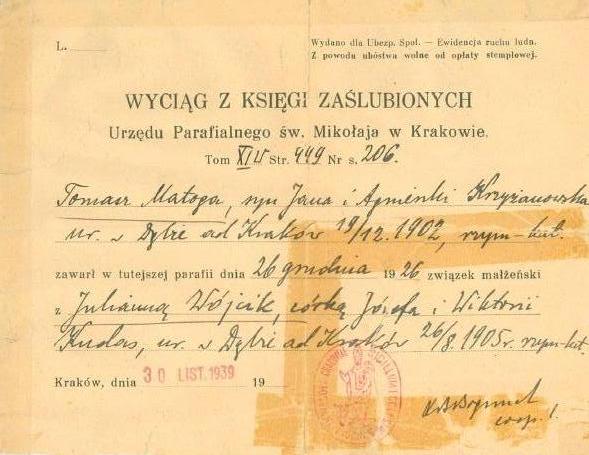 L.
Wydano dla Ubezp. Społ. — Ewidencja ruchu ludn.
Z powodu ubóstwa wolne od opłaty stemplowej.
WYCIĄG Z KSIĘGI ZAŚLUBIONYCH
Urzędu Parafialnego św. Mikołaja w Krakowie.
Tom XIV Str. 449 Nr s. 206.
Tomasz Matoga, syn Jana i Agnieszki Krzyżanowska
ur. w Dąbie ad Kraków 19/12.1902, rzym-kat.
zawarł w tutejszej parafii dnia 26 grudnia 1926 związek małżeński
z Julianną Wójcik, córką Józefa i Wiktorii
Kudas, ur. w Dąbie ad Kraków 26/8.1905 r. rzym-kat.
Kraków, dnia 30 LIST. 1939 19
coop.